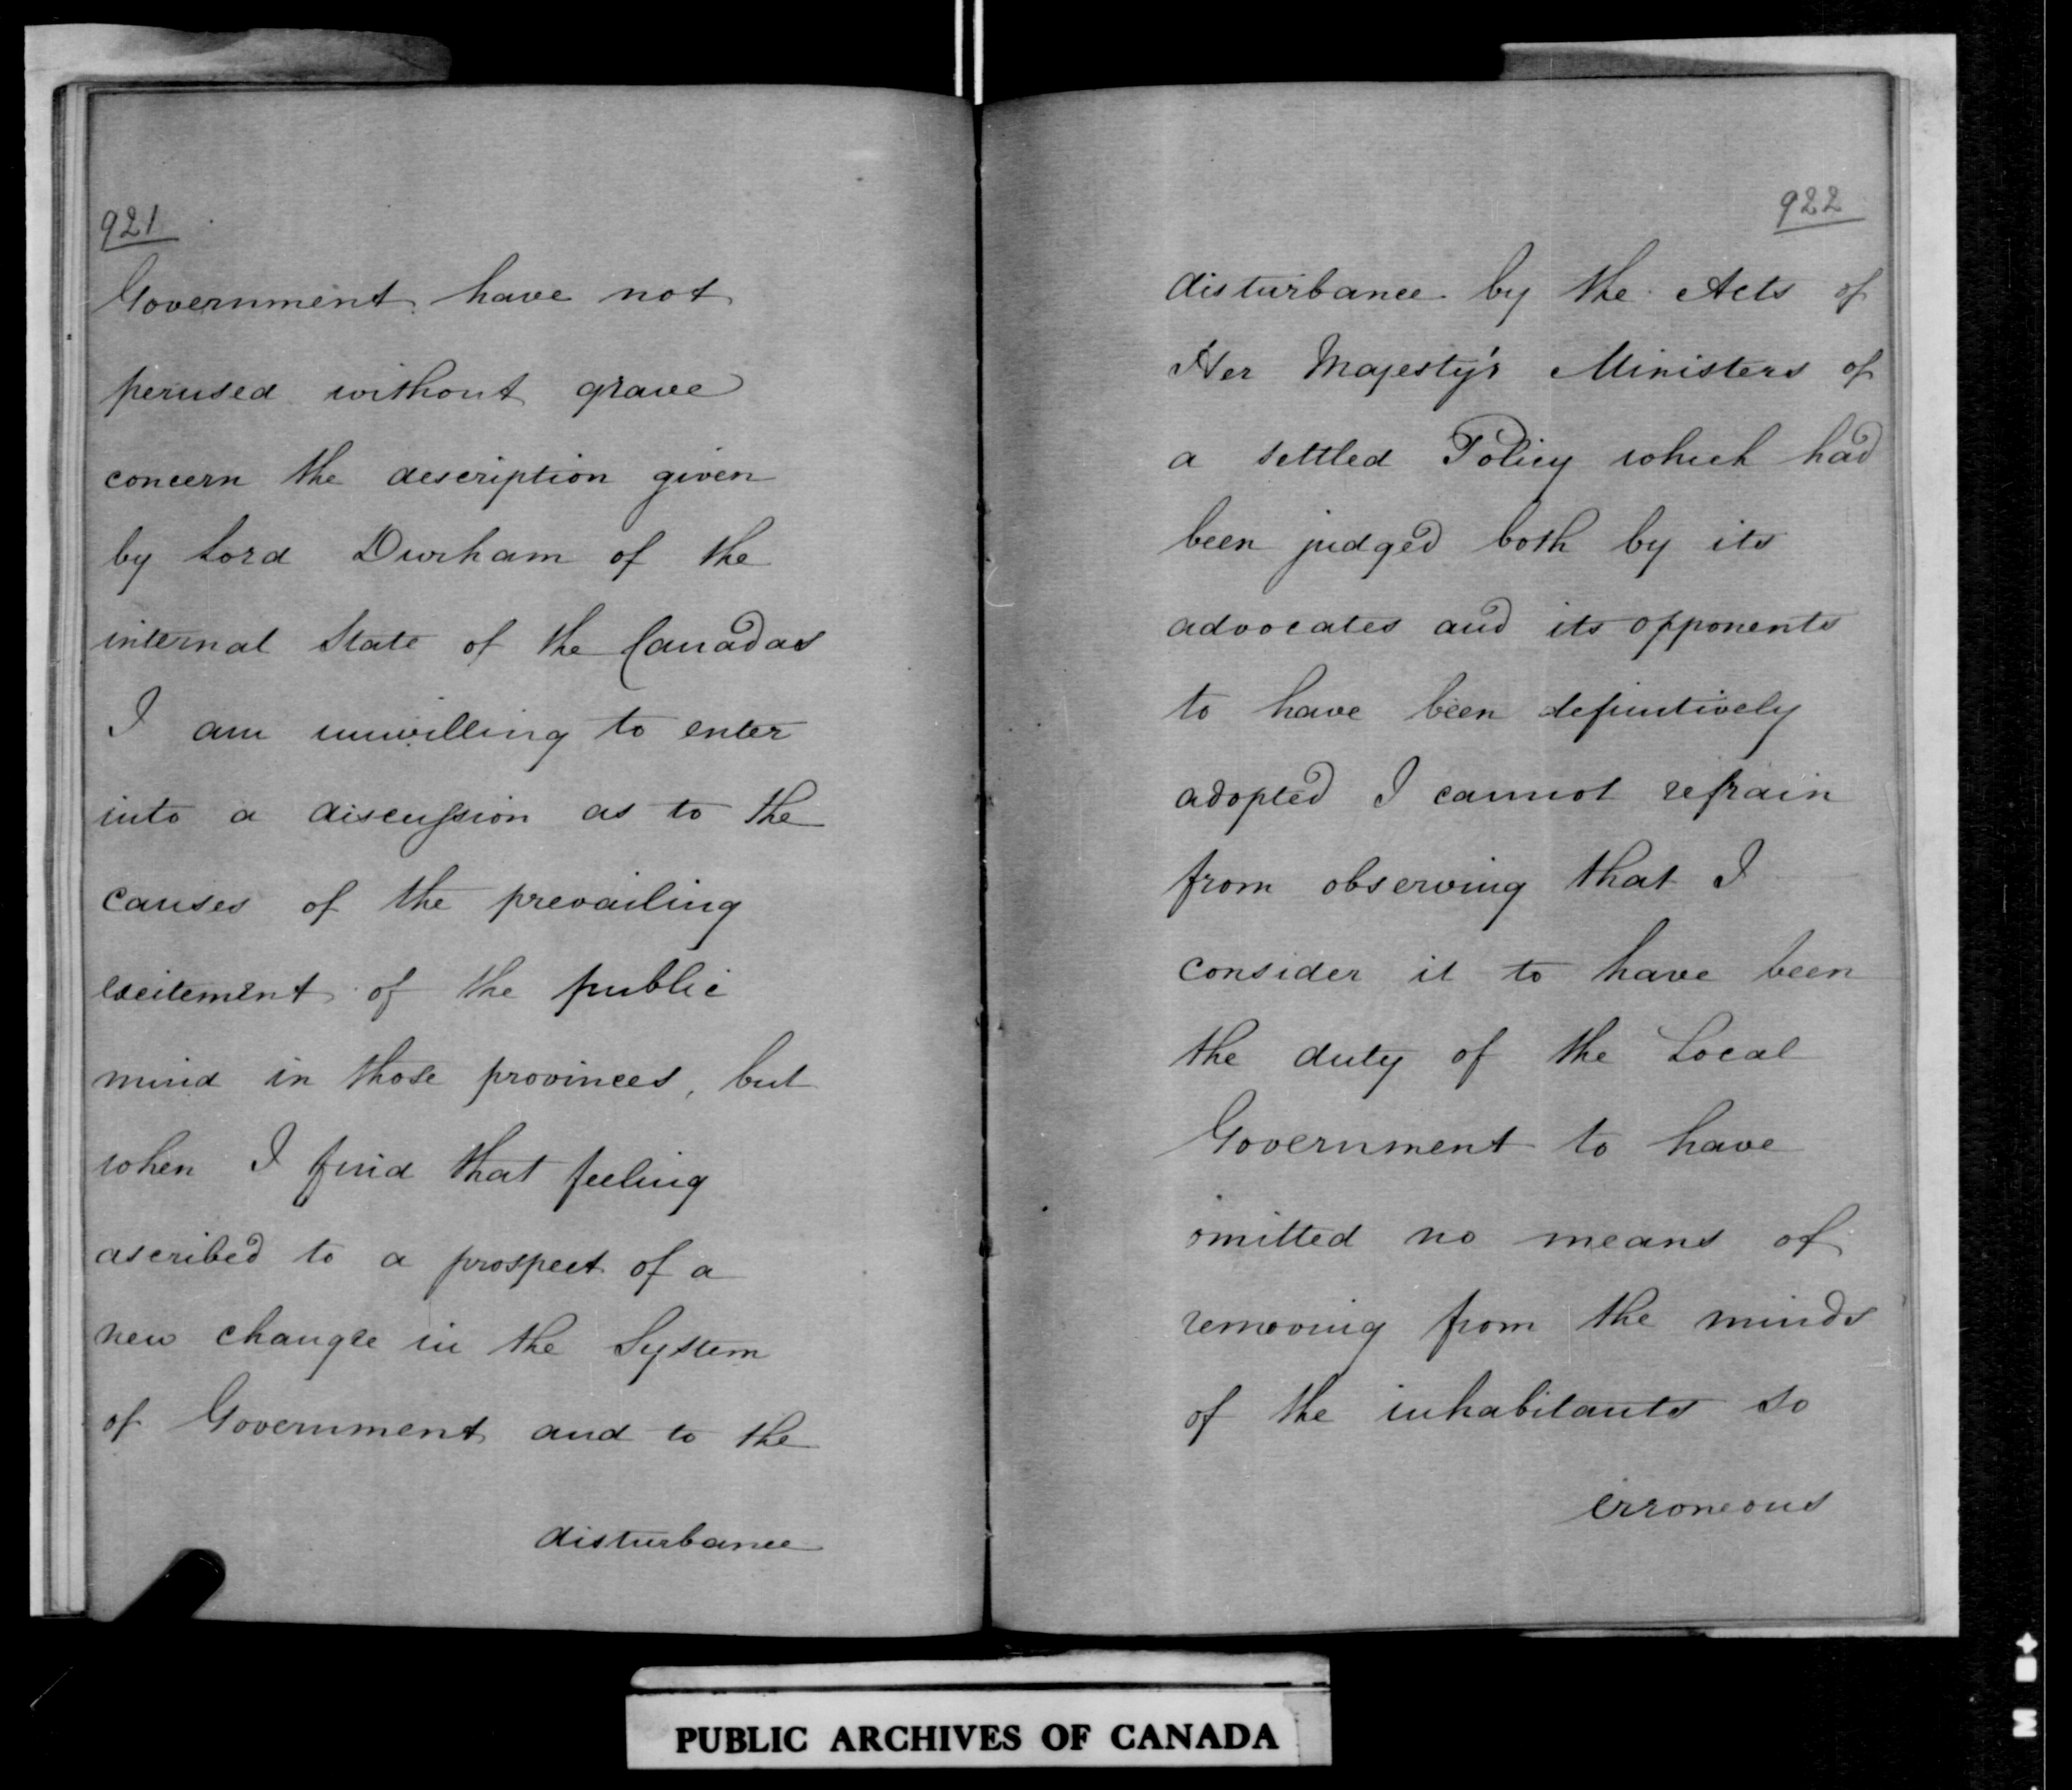 921
Government have not
perused without grave
concern the description given
by Lord Durham of the
internal State of the Canadas
I am unwilling to enter
into a discussion as to the
causes of the prevailing
excitement of the public
mind in those provinces, but
when I find that feeling
ascribed to a prospect of a
new change in the System
of Government and to the
disturbance
922
disturbance by the Acts of
Her Majesty's Ministers of
a settled Policy which had
been judged both by its
advocates and its opponents
to have been definitively
adopted I cannot refrain
from observing that I
consider it to have been
the duty of the Local
Government to have
omitted no means of
removing from the minds
of the inhabitants so
erroneous
PUBLIC ARCHIVES OF CANADA